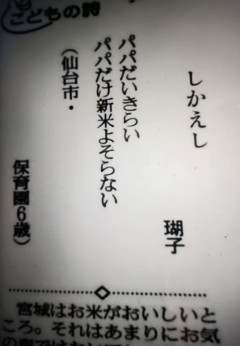 こどもの詩
しかえし
瑚子
パパだいきらい
パパだけ新米よそらない
(仙台市・
保育園6歳)
宮城はお米がおいしいと
ころ。それはあまりにお気